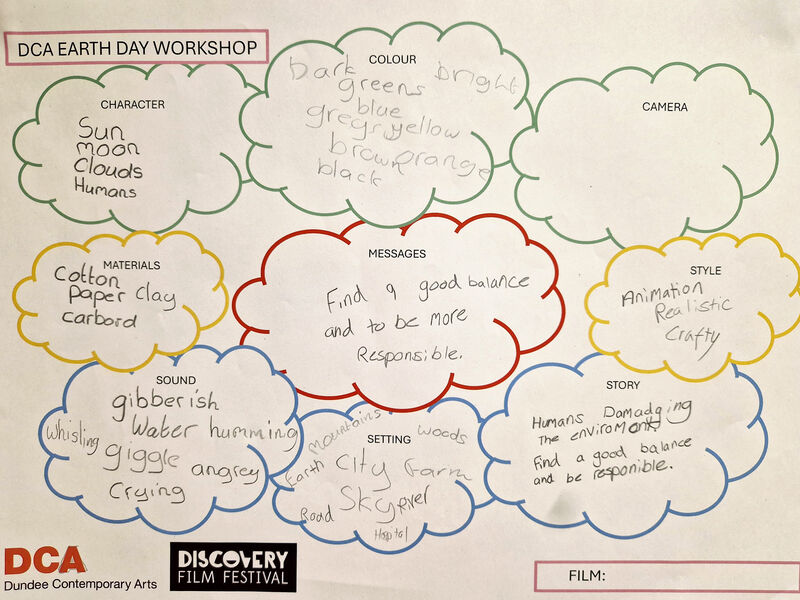 DCA EARTH DAY WORKSHOP
CHARACTER
Sun
moon
Clouds
Humans
COLOUR
Dark bright
greens
blue
greys yellow
brown orange
black
CAMERA
MATERIALS
Cotton
Paper clay
carbord
MESSAGES
Find a good balance
and to be more
Responsible.
STYLE
Animation
Realistic
Crafty
SOUND
gibberish
Water humming
whisling
giggle angrey
Crying
SETTING
mountains woods
Earth City Farm
Road Sky River
Hospital
STORY
Humans Damadging
The enviroment
Find a good balance
and be responible.
DCA
Dundee Contemporary Arts
DISCOVERY
FILM FESTIVAL
FILM: